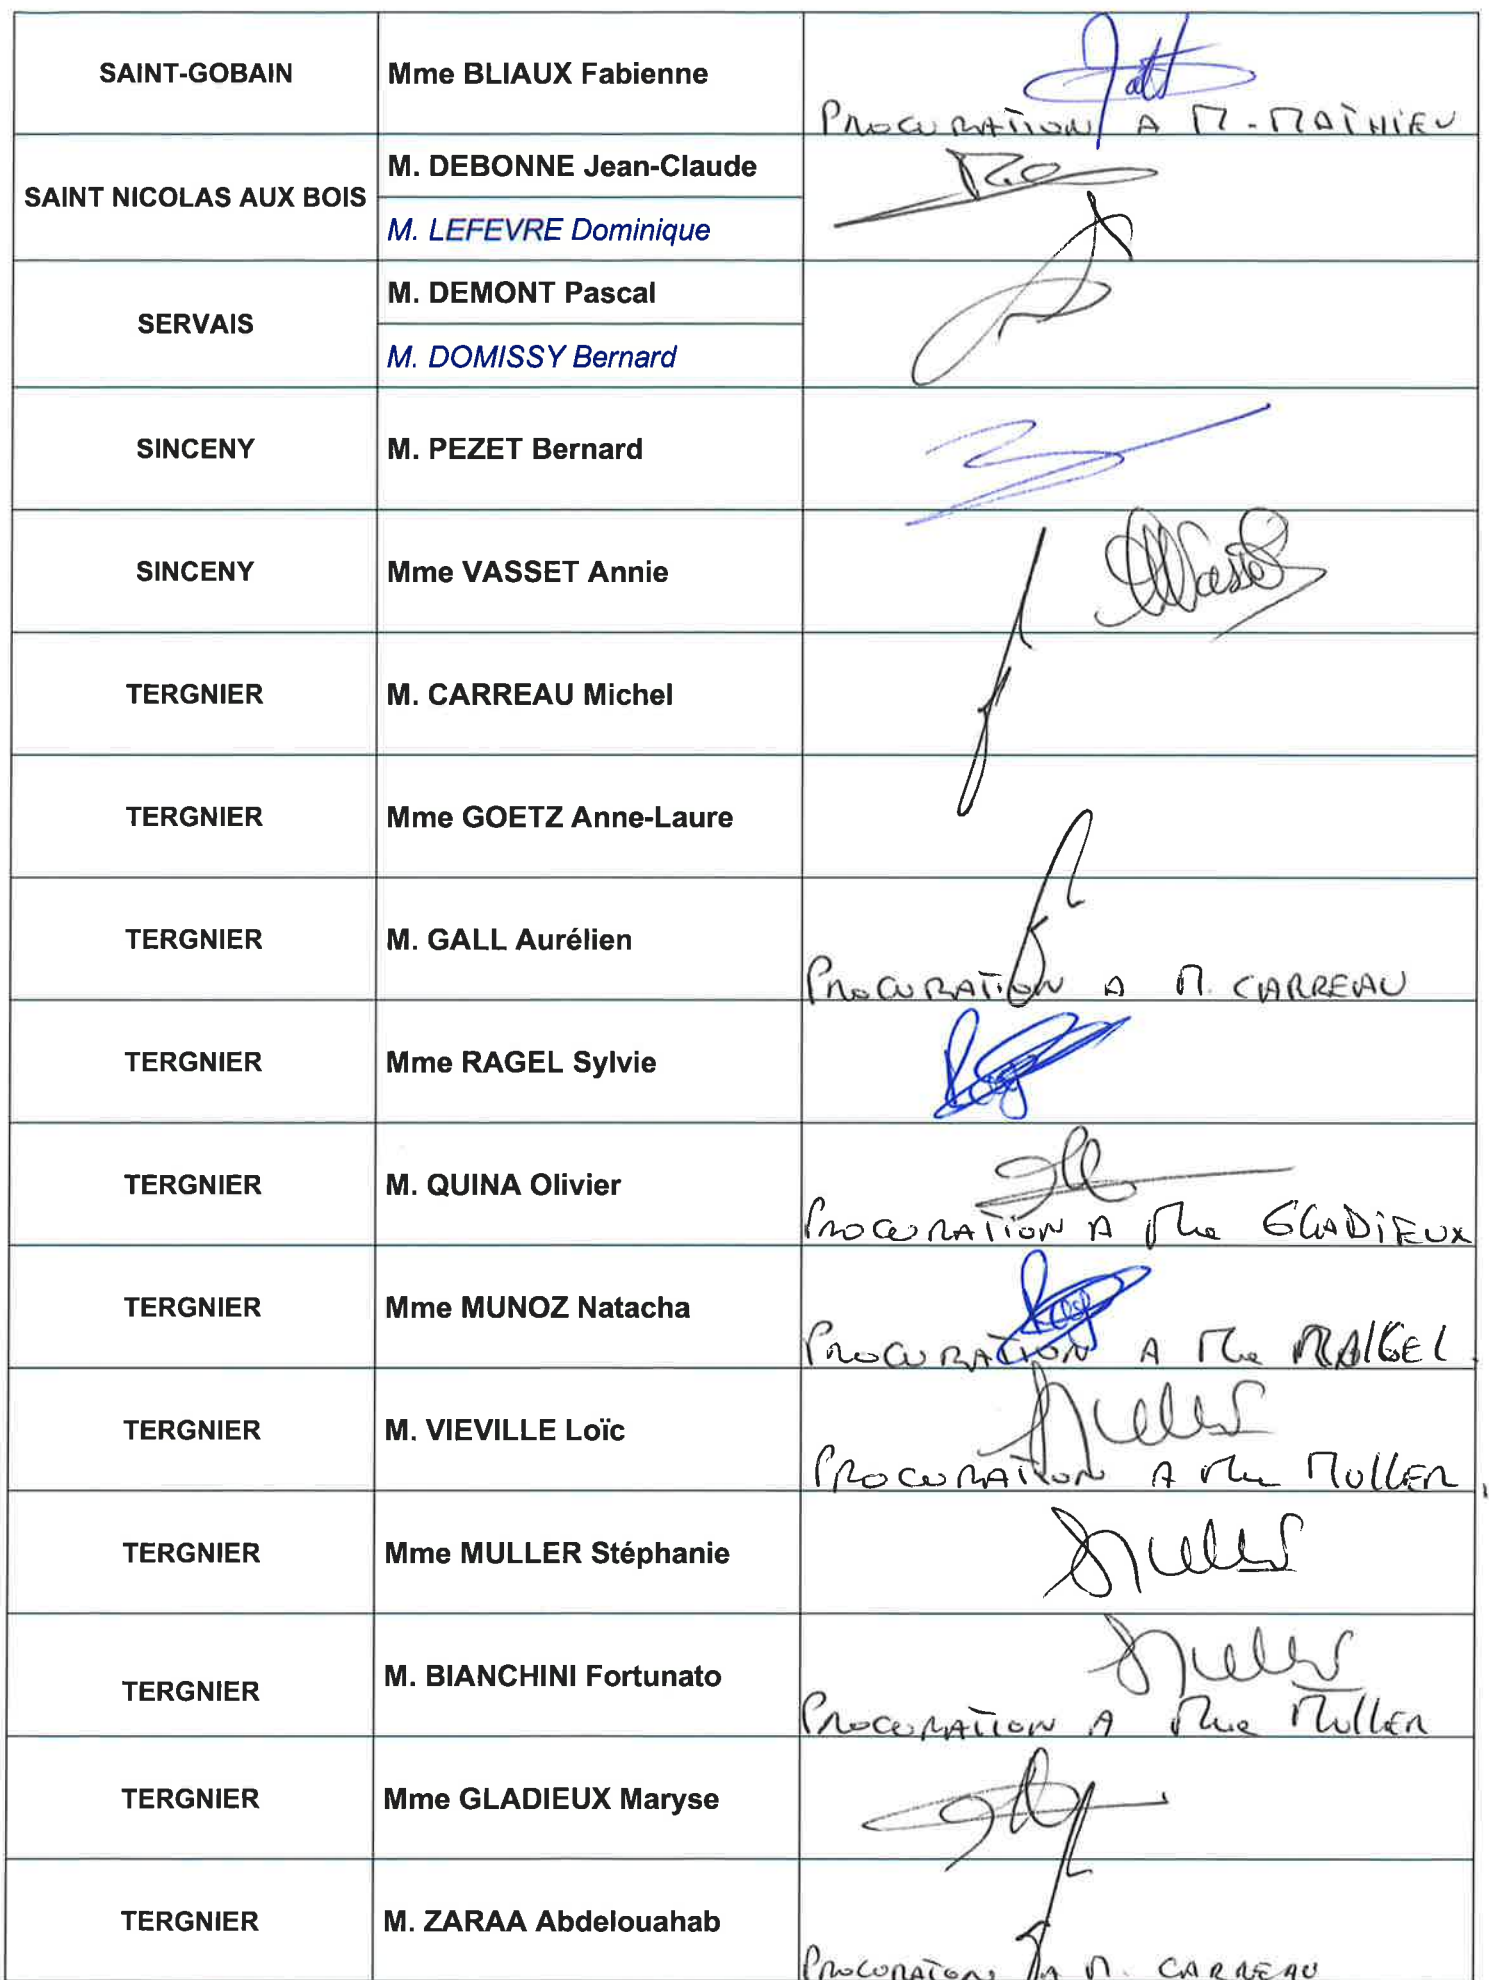 SAINT-GOBAIN
Mme BLIAUX Fabienne
PROCURATION A M. MATHIEU
SAINT NICOLAS AUX BOIS
M. DEBONNE Jean-Claude
M. LEFEVRE Dominique
SERVAIS
M. DEMONT Pascal
M. DOMISSY Bernard
SINCENY
M. PEZET Bernard
SINCENY
Mme VASSET Annie
TERGNIER
M. CARREAU Michel
TERGNIER
Mme GOETZ Anne-Laure
TERGNIER
M. GALL Aurélien
PROCURATION A M. CARREAU
TERGNIER
Mme RAGEL Sylvie
TERGNIER
M. QUINA Olivier
PROCURATION A Mme GLADIEUX
TERGNIER
Mme MUNOZ Natacha
PROCURATION A Mme RAGEL.
TERGNIER
M. VIEVILLE Loïc
PROCURATION A Mme MULLER
TERGNIER
Mme MULLER Stéphanie
TERGNIER
M. BIANCHINI Fortunato
PROCURATION A Mme MULLER
TERGNIER
Mme GLADIEUX Maryse
TERGNIER
M. ZARAA Abdelouahab
PROCURATION A M. CARREAU